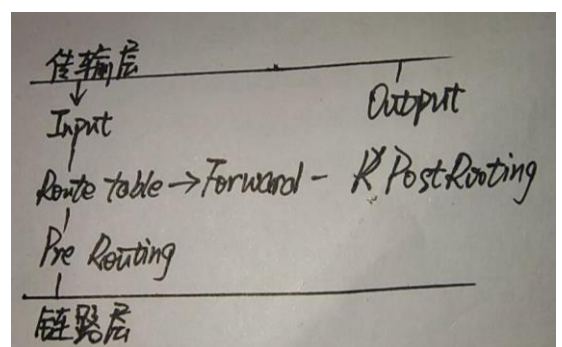 传输层
Input Output
Route table → Forward - PostRooting
Pre Routing
链路层